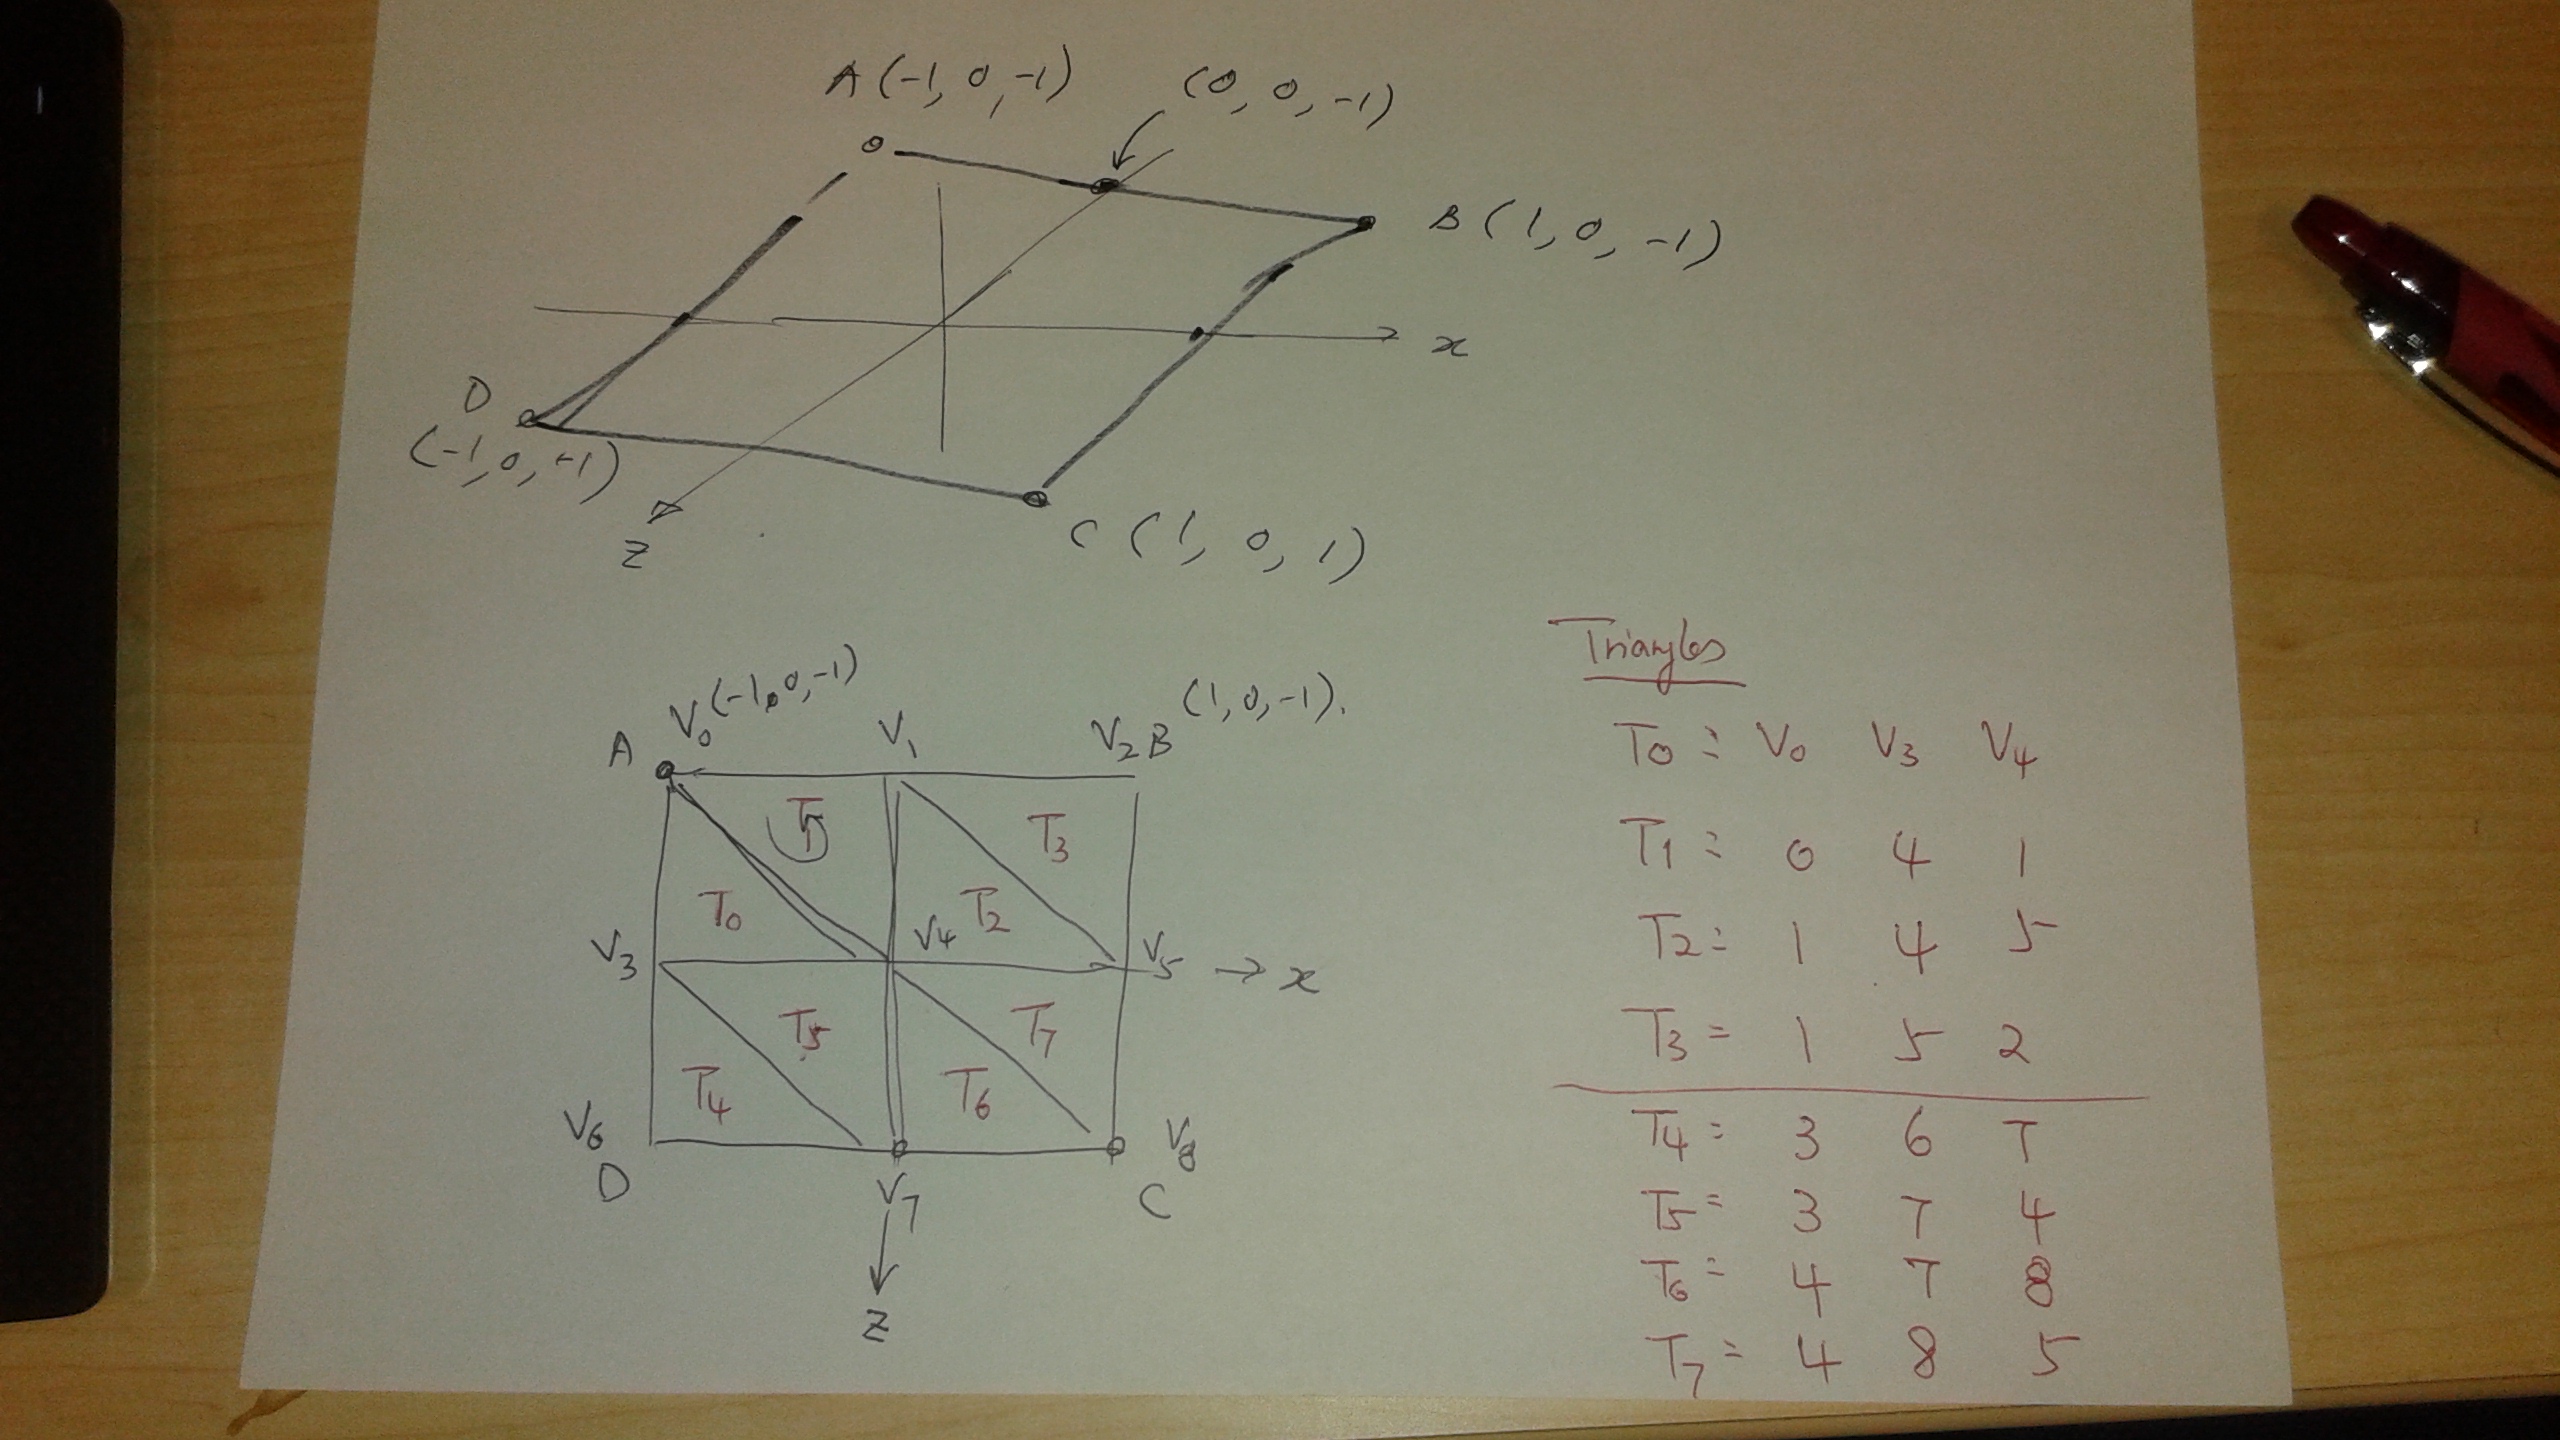 A (-1, 0, -1) (0, 0, -1)
B (1, 0, -1)
x
D
(-1, 0, -1)
z
C (1, 0, 1)
A V0 (-1, 0, -1) V1 V2 B (1, 0, -1).
T1 T3
T0 T2
V3 V4 V5 → x
T5 T7
T4 T6
V6 V8
D V7 C
z
Triangles
T0 = V0 V3 V4
T1 = 0 4 1
T2 = 1 4 5
T3 = 1 5 2
T4 = 3 6 7
T5 = 3 7 4
T6 = 4 7 8
T7 = 4 8 5